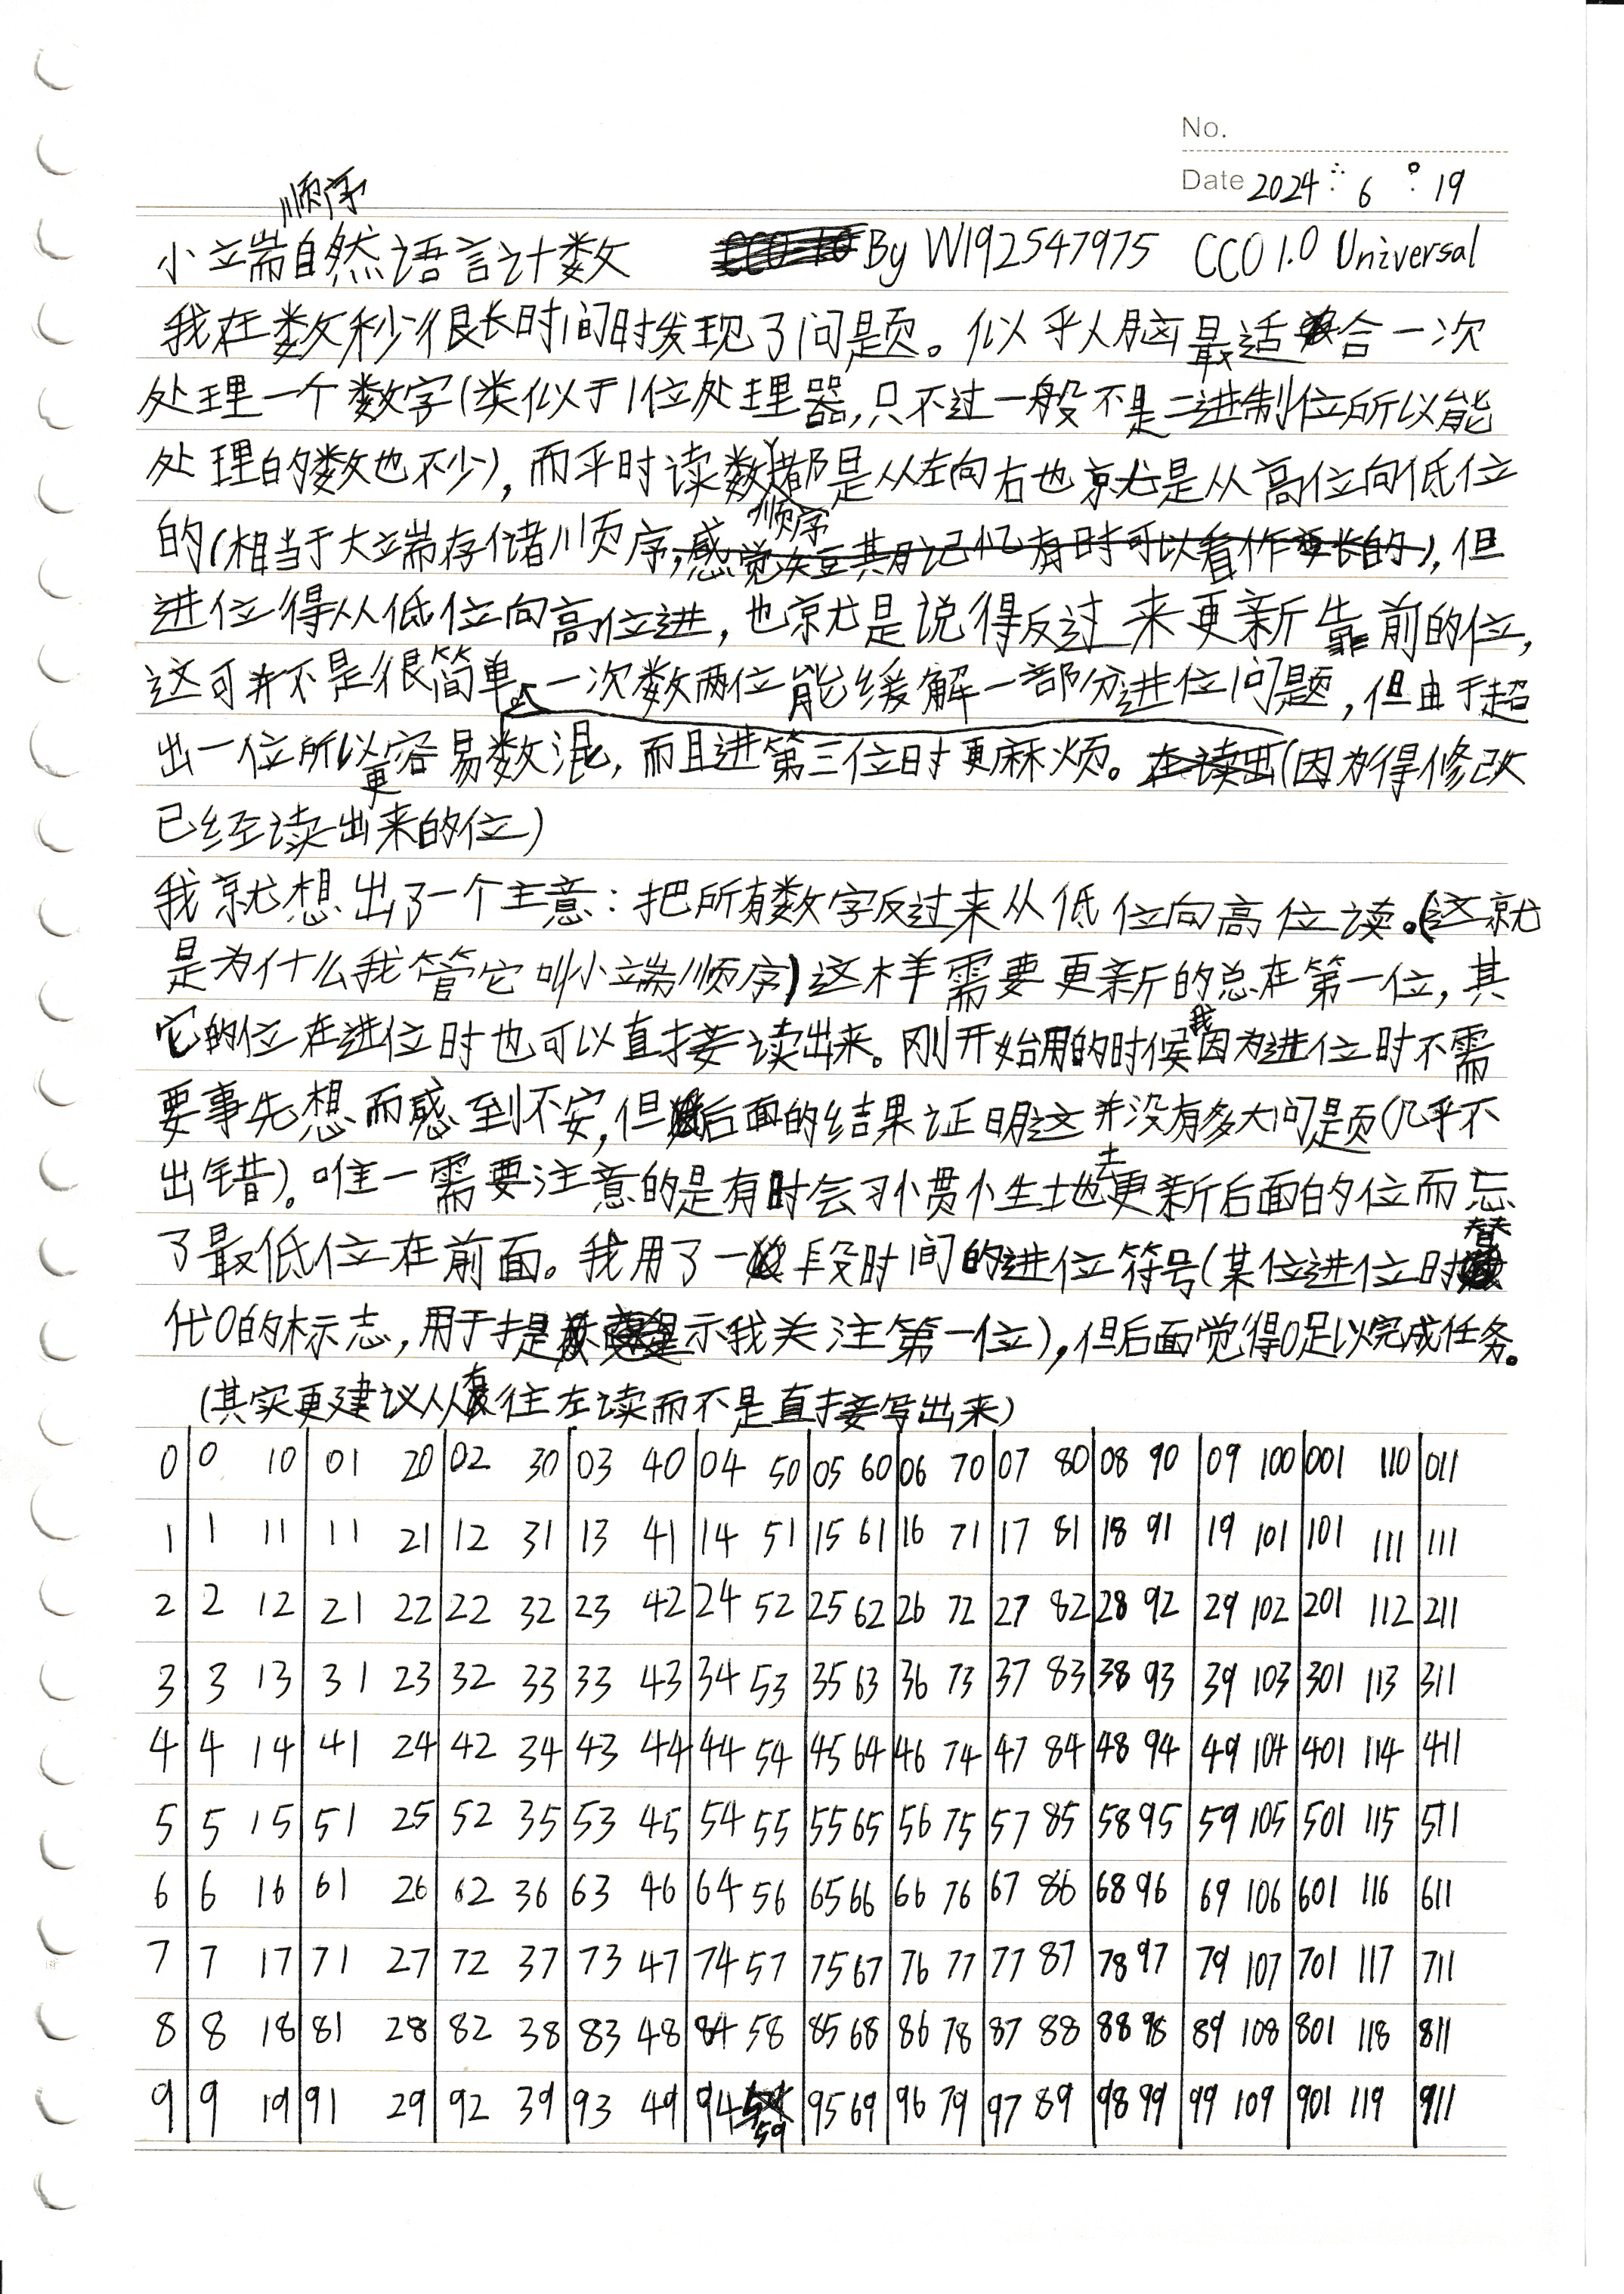 No.
Date 2024 6 19
顺序
小端自然语言计数 By W192547975 CC0 1.0 Universal
我在数秒很长时间时发现了问题。似乎人脑最适合一次
处理一个数字(类似于1位处理器,只不过一般不是二进制位所以能
处理的数也不少),而平时读数都是从左向右也就是从高位向低位
的(相当于大端存储顺序,感觉短期记忆有时可以看作更长的),但
进位得从低位向高位进,也就是说得反过来更新靠前的位,
这可并不是很简单。一次数两位能缓解一部分进位问题,但由于超
出一位所以更容易数混,而且进第三位时更麻烦。在读出(因为得修改
已经读出来的位)
我就想出了一个主意:把所有数字反过来从低位向高位读。(这就
是为什么我管它叫小端顺序)这样需要更新的总在第一位,其
它的位在进位时也可以直接读出来。刚开始用的时候我因为进位时不需
要事先想而感到不安,但后面的结果证明这并没有多大问题(几乎不
出错)。唯一需要注意的是有时会习惯性地去更新后面的位而忘
了最低位在前面。我用了一段时间的进位符号(某位进位时替
代0的标志,用于提示我关注第一位),但后面觉得0足以完成任务。
(其实更建议从右往左读而不是直接写出来)
0 0 10 01 20 02 30 03 40 04 50 05 60 06 70 07 80 08 90 09 100 001 110 011
1 1 11 11 21 12 31 13 41 14 51 15 61 16 71 17 81 18 91 19 101 101 111 111
2 2 12 21 22 22 32 23 42 24 52 25 62 26 72 27 82 28 92 29 102 201 112 211
3 3 13 31 23 32 33 33 43 34 53 35 63 36 73 37 83 38 93 39 103 301 113 311
4 4 14 41 24 42 34 43 44 44 54 45 64 46 74 47 84 48 94 49 104 401 114 411
5 5 15 51 25 52 35 53 45 54 55 55 65 56 75 57 85 58 95 59 105 501 115 511
6 6 16 61 26 62 36 63 46 64 56 65 66 66 76 67 86 68 96 69 106 601 116 611
7 7 17 71 27 72 37 73 47 74 57 75 67 76 77 77 87 78 97 79 107 701 117 711
8 8 18 81 28 82 38 83 48 84 58 85 68 86 78 87 88 88 98 89 108 801 118 811
9 9 19 91 29 92 39 93 49 94 59 95 69 96 79 97 89 98 99 99 109 901 119 911